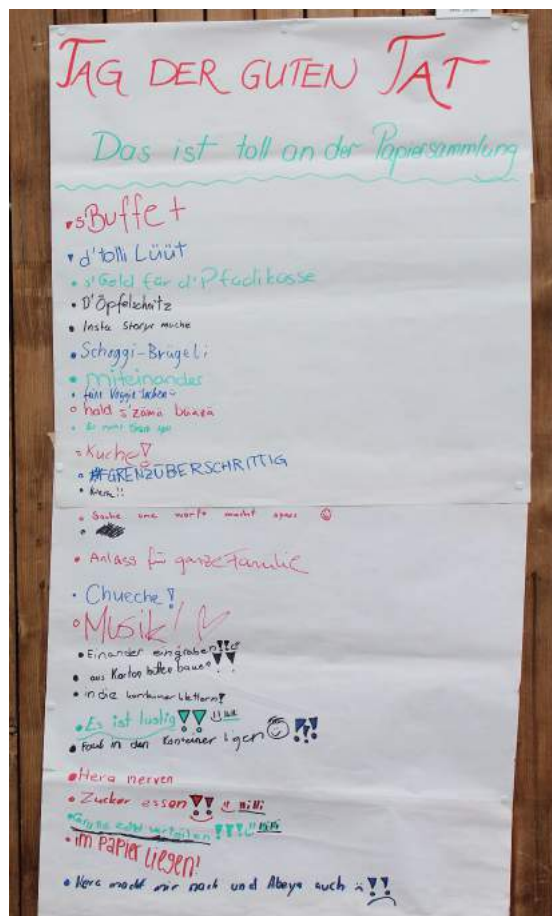 TAG DER GUTEN TAT
Das ist toll an der Papiersammlung
s'Buffet
d'tolli Lüüt
s'Geld für d'Pfadikasse
D'Öpfelschnitz
Insta Storys mache
Schoggi-Brügeli
miteinander
feini Veggie Sachen
hald s'zämä
Kuche!
#GRENZÜBERSCHRITTIG
Sache ume werfe macht spass ☺
Anlass für ganze Familie
Chueche!
Musik! ♡
Einander eingraben!!
aus Karton hütten bauen!!
in die kontainer klettern!
Es ist lustig!!
Faul in den Konteiner ligen ☺!!
Hera nerven
Zucker essen!! HiHi
verteilen!!! HiHi
im Papier liegen!
Hera macht mir nach und Abeya auch !!